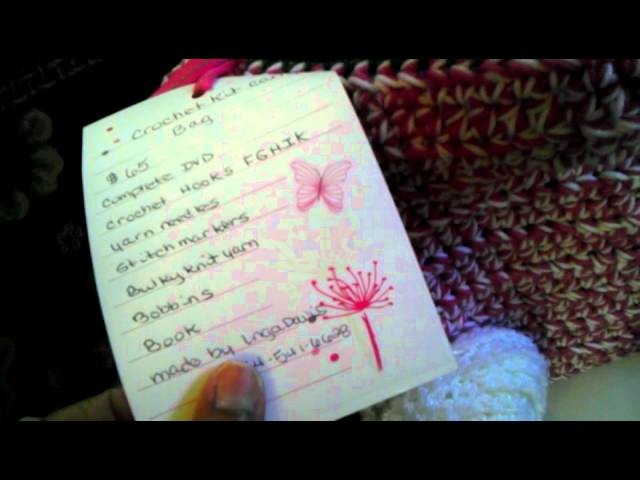 Crochet Kit
Bag
$65
Complete DVD
Crochet Hooks FGHIK
Yarn needles
Stitch markers
Bulky knit yarn
Bobbins
Book
made by Inga Davis
4-541-6628